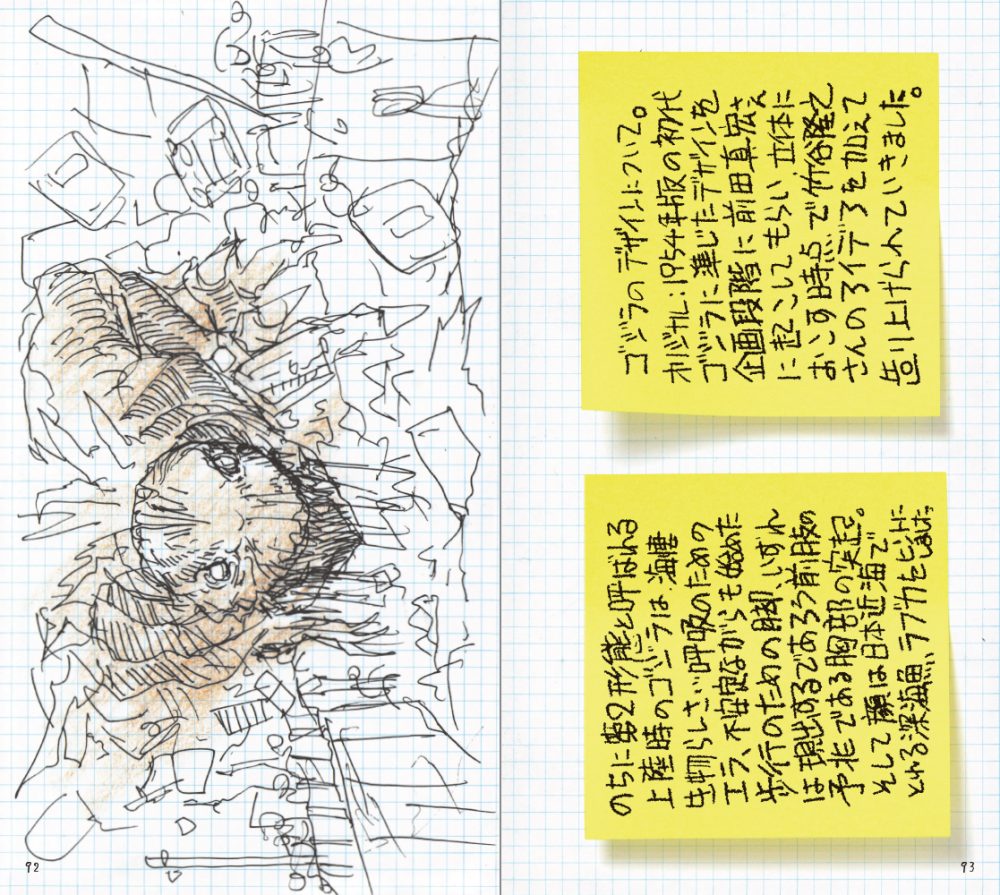 92
ゴジラのデザインについて。
オリジナル:1954年版の初代
ゴジラに準じたデザインを
企画段階に前田真宏さん
に起こしてもらい、立体に
おこす時点で竹谷隆之
さんのアイデアを加えて
造り上げられていきました。
のちに第2形態と呼ばれる
上陸時のゴジラは、海棲
生物らしさ、呼吸のための
エラ、不安定ながらも始めた
歩行のための脚、いずれ
は現出するであろう前肢の
予兆である胸部の突起。
そして顔は日本近海で
とれる深海魚ラブカをヒントに
しました。
93